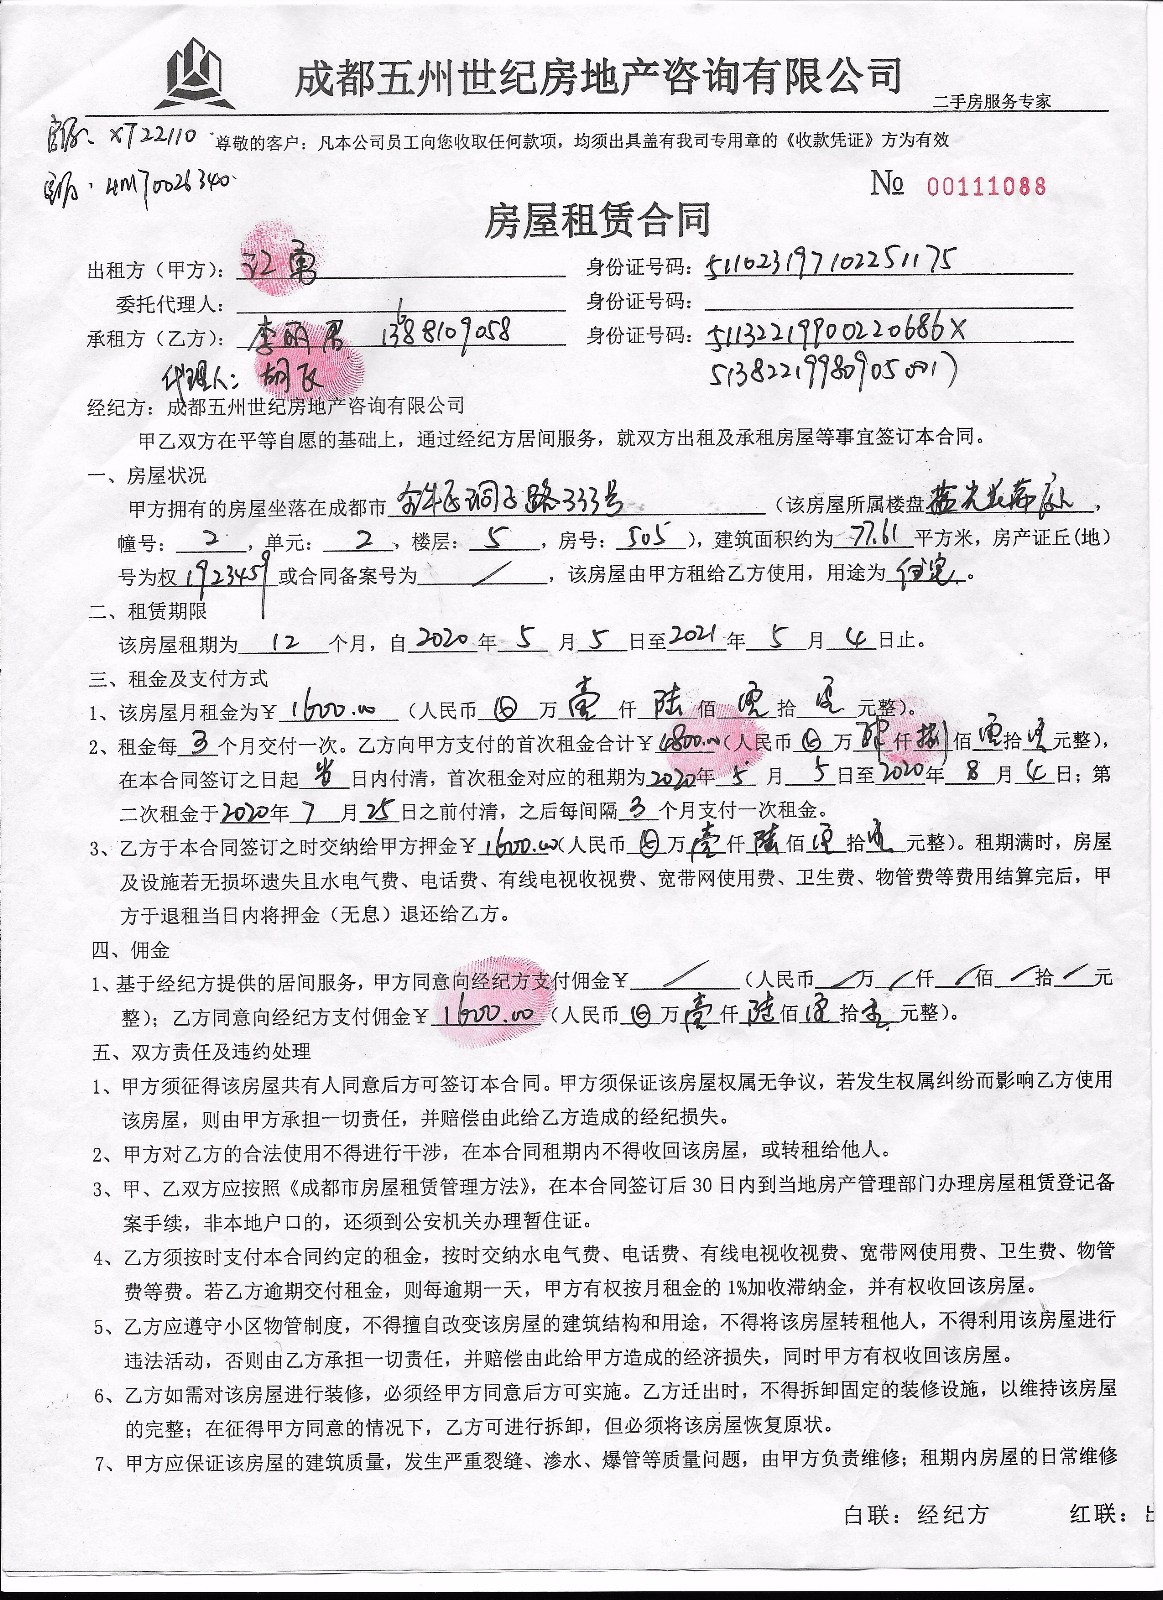 成都五州世纪房地产咨询有限公司
二手房服务专家
XT22110 尊敬的客户：凡本公司员工向您收取任何款项，均须出具盖有我司专用章的《收款凭证》方为有效
HM70026340
№ 00111088
房屋租赁合同
出租方（甲方）： 江勇 身份证号码：511023197102251175
委托代理人： 身份证号码：
承租方（乙方）： 李丽君 身份证号码：51132219900220686X
代理人：胡 513822199809050017
经纪方：成都五州世纪房地产咨询有限公司
甲乙双方在平等自愿的基础上，通过经纪方居间服务，就双方出租及承租房屋等事宜签订本合同。
一、房屋状况
甲方拥有的房屋坐落在成都市 金牛区洞子路333号 （该房屋所属楼盘 蓝光花满庭，
幢号： 2 ，单元： 2 ，楼层： 5 ，房号： 505 ），建筑面积约为 77.61 平方米，房产证丘(地)
号为权 1923459 或合同备案号为 / ，该房屋由甲方租给乙方使用，用途为 住宅 。
二、租赁期限
该房屋租期为 12 个月，自 2020 年 5 月 5 日至 2021 年 5 月 4 日止。
三、租金及支付方式
1、该房屋月租金为￥ 1600.00 （人民币 万 壹 仟 陆 佰 零 拾 零 元整）。
2、租金每 3 个月交付一次。乙方向甲方支付的首次租金合计￥ 4800.00 （人民币 万 肆 仟 捌 佰 零 拾 零 元整），
在本合同签订之日起 当 日内付清，首次租金对应的租期为 2020 年 5 月 5 日至 2020 年 8 月 4 日；第
二次租金于 2020 年 7 月 25 日之前付清，之后每间隔 3 个月支付一次租金。
3、乙方于本合同签订之时交纳给甲方押金￥ 1600.00 （人民币 万 壹 仟 陆 佰 零 拾 零 元整）。租期满时，房屋
及设施若无损坏遗失且水电气费、电话费、有线电视收视费、宽带网使用费、卫生费、物管费等费用结算完后，甲
方于退租当日内将押金（无息）退还给乙方。
四、佣金
1、基于经纪方提供的居间服务，甲方同意向经纪方支付佣金￥ / （人民币 / 万 / 仟 / 佰 / 拾 / 元
整）；乙方同意向经纪方支付佣金￥ 1600.00 （人民币 万 壹 仟 陆 佰 零 拾 零 元整）。
五、双方责任及违约处理
1、甲方须征得该房屋共有人同意后方可签订本合同。甲方须保证该房屋权属无争议，若发生权属纠纷而影响乙方使用
该房屋，则由甲方承担一切责任，并赔偿由此给乙方造成的经纪损失。
2、甲方对乙方的合法使用不得进行干涉，在本合同租期内不得收回该房屋，或转租给他人。
3、甲、乙双方应按照《成都市房屋租赁管理方法》，在本合同签订后30日内到当地房产管理部门办理房屋租赁登记备
案手续，非本地户口的，还须到公安机关办理暂住证。
4、乙方须按时支付本合同约定的租金，按时交纳水电气费、电话费、有线电视收视费、宽带网使用费、卫生费、物管
费等费。若乙方逾期交付租金，则每逾期一天，甲方有权按月租金的1%加收滞纳金，并有权收回该房屋。
5、乙方应遵守小区物管制度，不得擅自改变该房屋的建筑结构和用途，不得将该房屋转租他人，不得利用该房屋进行
违法活动，否则由乙方承担一切责任，并赔偿由此给甲方造成的经济损失，同时甲方有权收回该房屋。
6、乙方如需对该房屋进行装修，必须经甲方同意后方可实施。乙方迁出时，不得拆卸固定的装修设施，以维持该房屋
的完整；在征得甲方同意的情况下，乙方可进行拆卸，但必须将该房屋恢复原状。
7、甲方应保证该房屋的建筑质量，发生严重裂缝、渗水、爆管等质量问题，由甲方负责维修；租期内房屋的日常维修
白联：经纪方 红联：